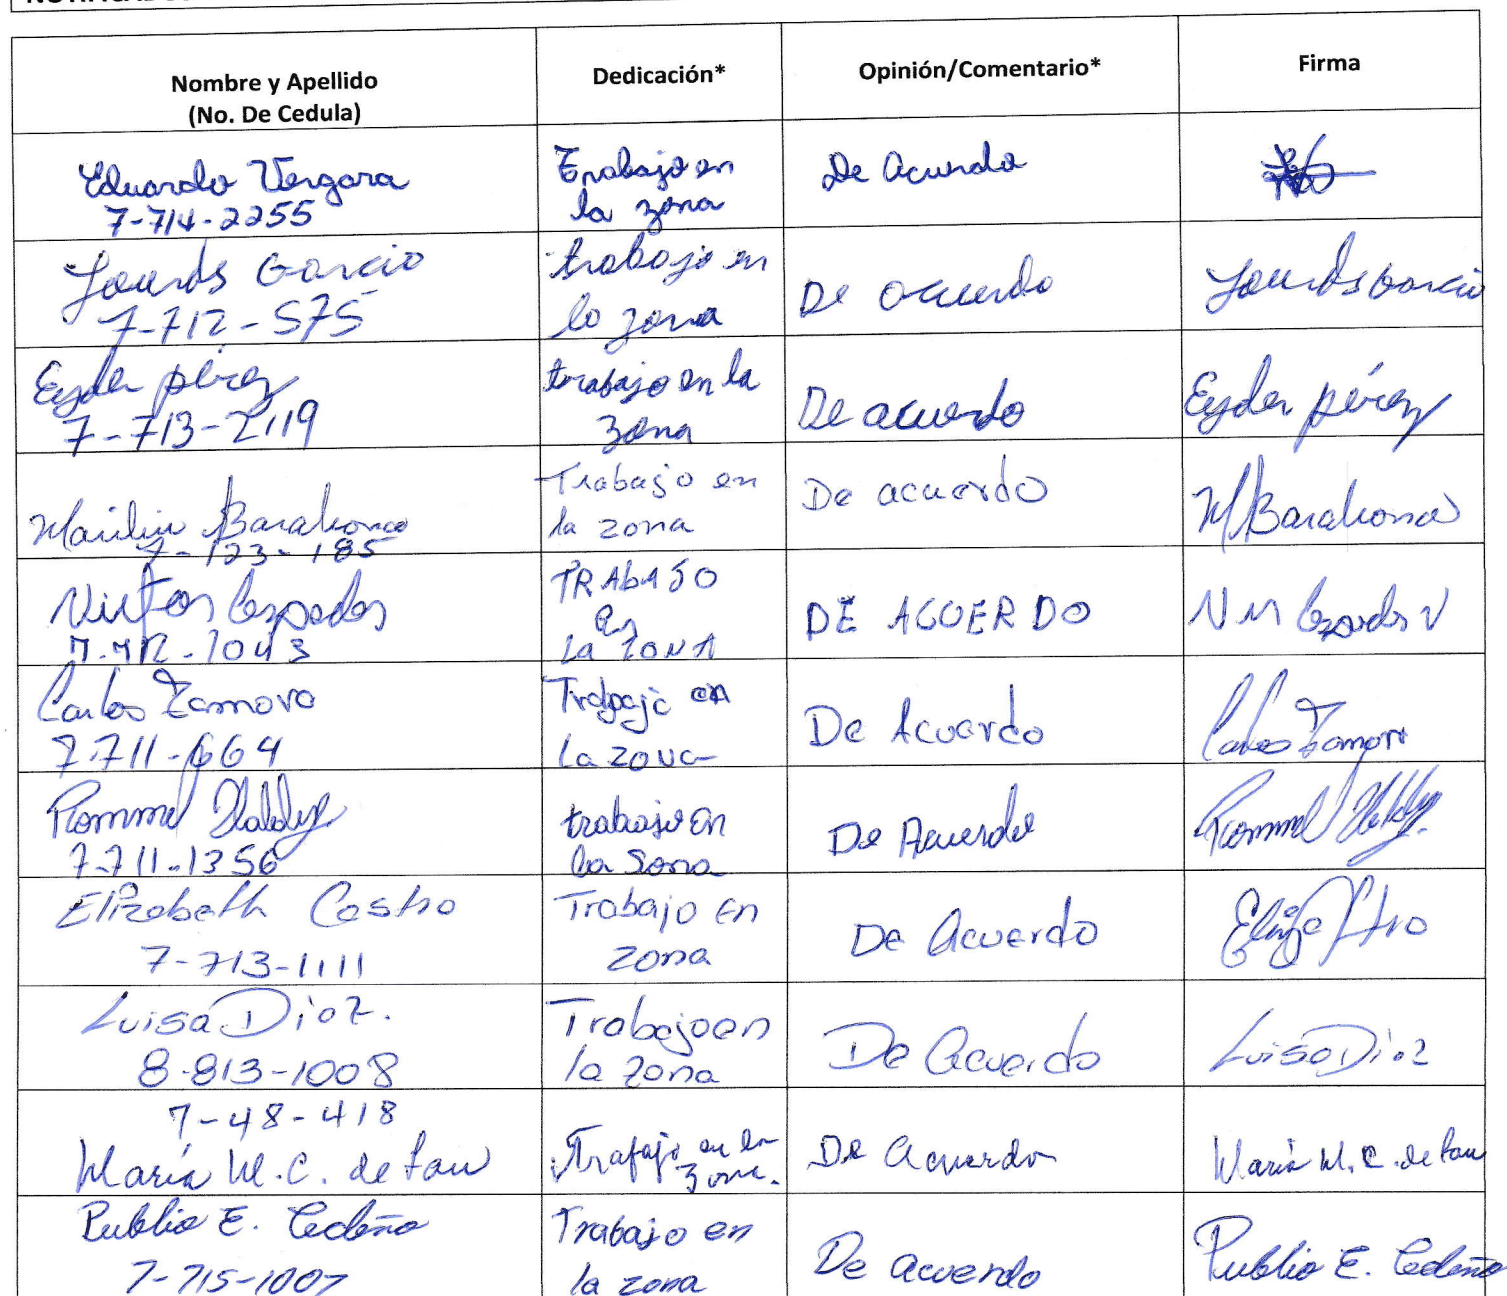 Nombre y Apellido
(No. De Cedula)
Dedicación*
Opinión/Comentario*
Firma
Eduardo Vergara
7-714-2255
Trabajo en
la zona
De acuerdo
Lourds Garcia
7-712-575
trabajo en
la zona
De acuerdo
Lourds Garcia
Eyder pérez
7-713-2119
trabajo en la
zona
De acuerdo
Eyder pérez
Marilin Barahona
7-123-185
Trabajo en
la zona
De acuerdo
M Barahona
7-712-1043
TRAbAJO
en
La ZONA
DE ACUERDO
Carlos Zamora
7-711-664
Trabajo en
la zona
De Acuerdo
Carlos Zamora
Rommel
7-711-1356
trabajo en
la Sona
De Acuerdo
Rommel
Elizabeth Castro
7-713-1111
Trabajo en
zona
De Acuerdo
Luisa Diaz.
8-813-1008
Trabajo en
la zona
De acuerdo
Luisa Diaz
7-48-418
María M.C. de Lau
Trabajo en la
zona.
De acuerdo
María M.C. de Lau
Publio E. Cedeño
7-715-1007
Trabajo en
la zona
De acuerdo
Publio E. Cedeño